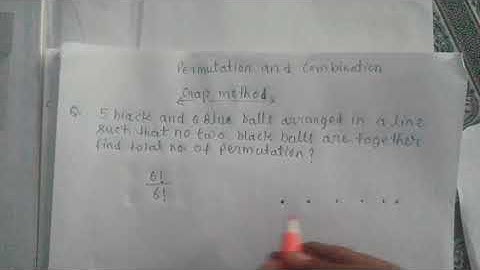 Permutation and Combination
Gap method
Q. 5 black and 6 Blue balls arranged in a line
such that no two black balls are together
find total no. of permutation?
6!
6!